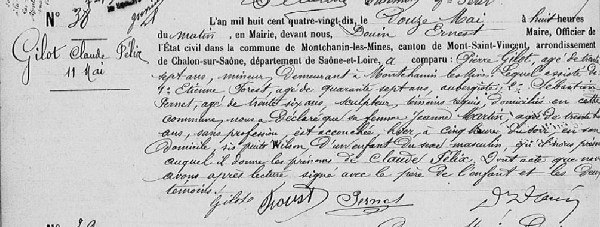 N° 38
Gilot Claude Félix
11 Mai
L'an mil huit cent quatre-vingt-dix, le Douze Mai à huit heures
du matin, en Mairie, devant nous, Douin Ernest Maire, Officier de
l'État civil dans la commune de Montchanin-les-Mines, canton de Mont-Saint-Vincent, arrondissement
de Chalon-sur-Saône, département de Saône-et-Loire, a comparu: Pierre Gilot, agé de trente
sept ans, mineur, demeurant à Montchanin les Mines, lequel assisté de
1° Etienne Forest, agé de quarante sept ans, aubergiste; 2° Sébastien
Pernet, agé de trente six ans, sculpteur, témoins requis, domiciliés en cette
commune, nous a déclaré que sa femme Jeanne Martin, agée de trente
ans, sans profession, est accouchée, hier, à cinq heures du soir, en son
domicile, sis puits Wilson, d'un enfant du sexe masculin, qu'il nous présente
auquel il donne les prénoms de Claude Félix. Dont acte que nous
avons après lecture signé avec le père de l'enfant et les deux
témoins.
Gilot Forest Pernet Douin
N°